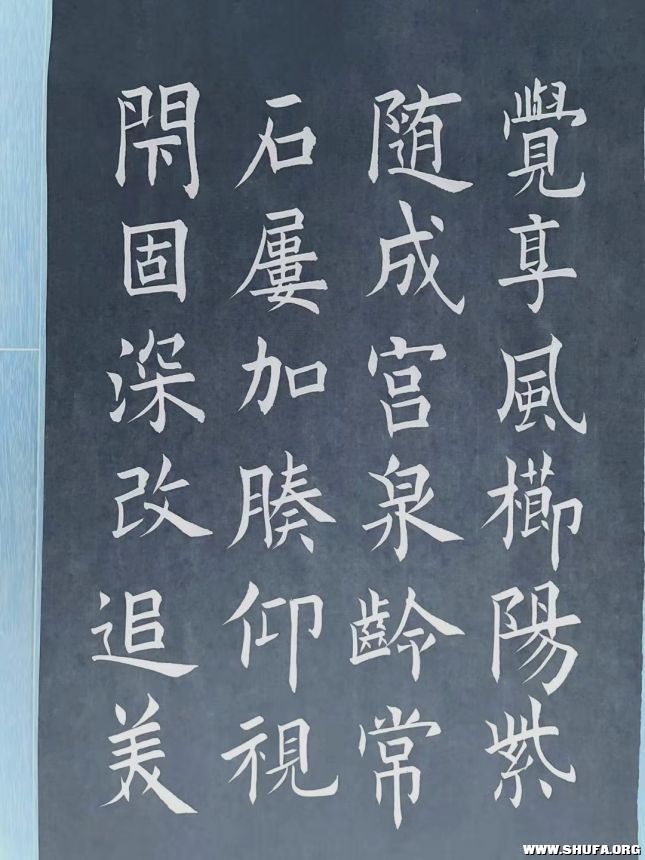 覺享風櫛陽紫
随成宫泉齡常
石屢加腠仰視
閇固深改追美
WWW.SHUFA.ORG